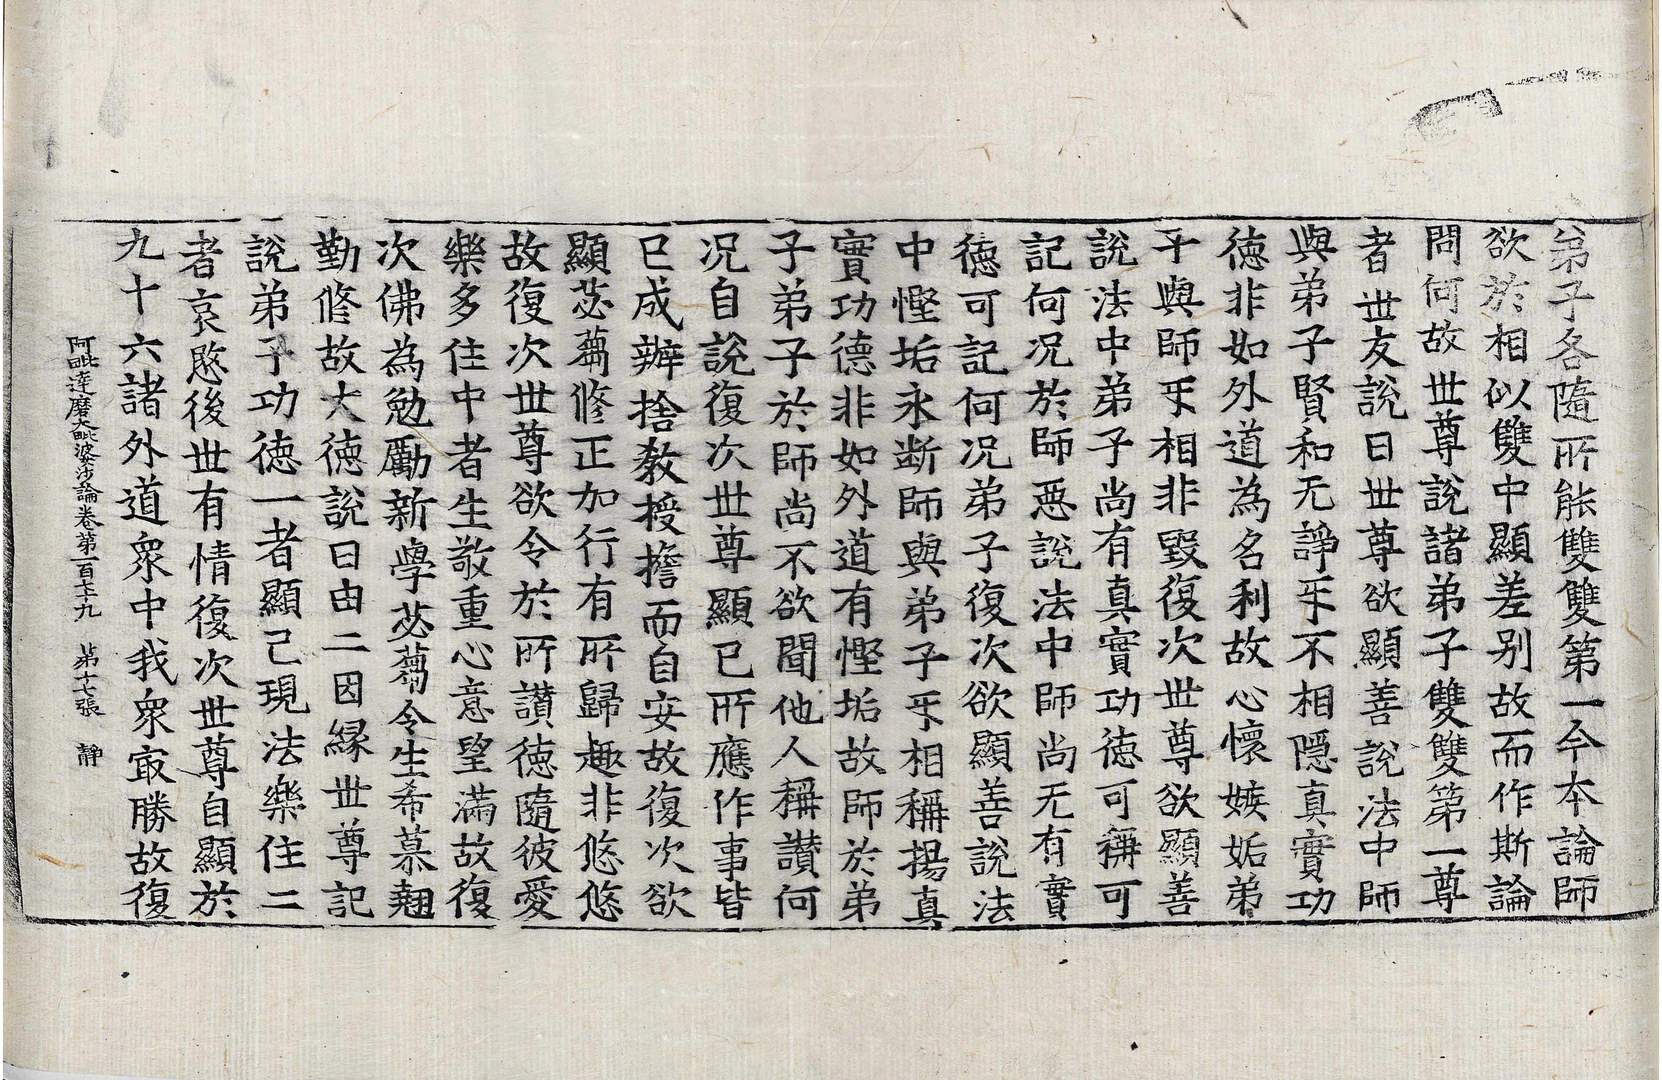 弟子各隨所能雙雙第一今本論師
欲於相似雙中顯差别故而作斯論
問何故世尊說諸弟子雙雙第一尊
者世友說曰世尊欲顯善說法中師
與弟子賢和无諍㸦不相隱真實功
德非如外道為名利故心懷嫉妬弟
子與師㸦相非毀復次世尊欲顯善
說法中弟子尚有真實功德可稱可
記何况於師惡說法中師尚无有實
德可記何况弟子復次欲顯善說法
中慳垢永断師與弟子㸦相稱揚真
實功德非如外道有慳垢故師於弟
子弟子於師尚不欲聞他人稱讃何
况自說復次世尊顯已所應作事皆
已成辦捨教授擔而自安故復次欲
顯苾蒭修正加行有所歸趣非悠悠
故復次世尊欲令於所讃德隨彼愛
樂多住中者生敬重心意望滿故復
次佛為勉勵新學苾蒭令生希慕翹
勤修故大德說曰由二因縁世尊記
說弟子功德一者顯己現法樂住二
者哀愍後世有情復次世尊自顯於
九十六諸外道衆中我衆㝡勝故復
阿毗達磨大毗婆沙論卷第一百七十九 第十七張 靜